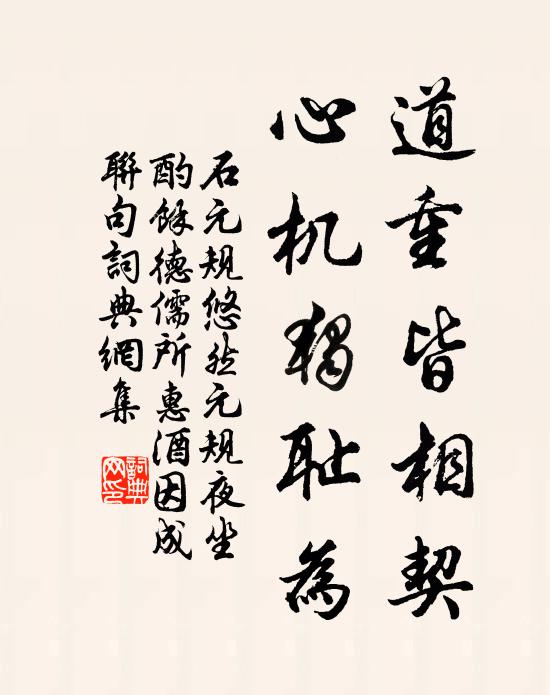 道重皆相契
心机独耻為
石元規悠然元規夜坐
酌餘德儒所惠酒因成
聯句詞典網集
詞典网印